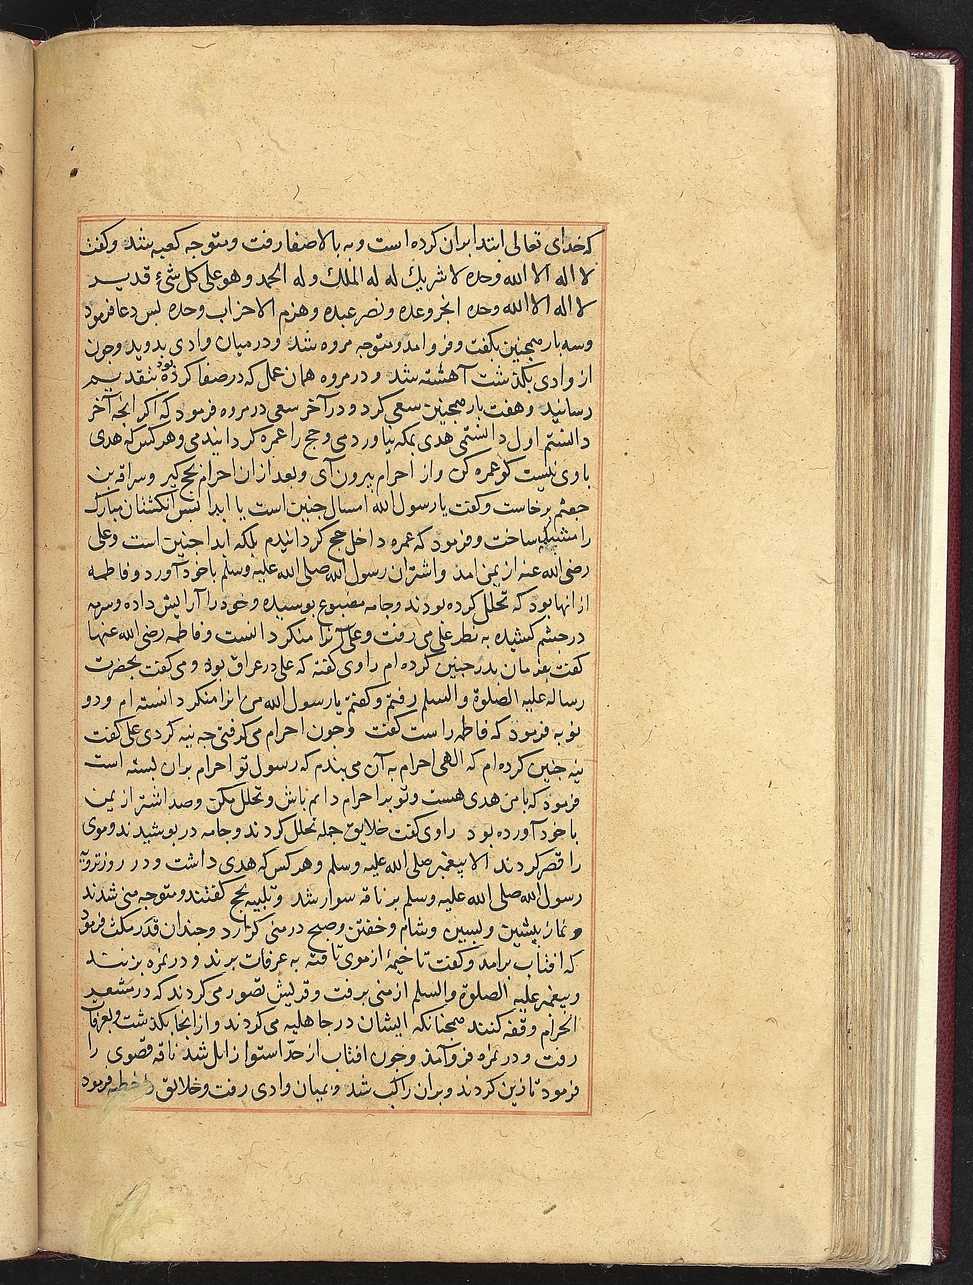 که خدای تعالی ابتدا بران کرده است و به بالا صفا رفت و متوجه کعبه شد و کفت
لا اله الا الله وحده لا شریك له له الملك و له الحمد و هو علی کل شیٔ قدیر
لا اله الا الله وحده انجز وعده و نصر عبده و هزم الاحزاب وحده بس دعا فرمود
و سه بار همجنین بکفت و فرو امد و متوجه مروه شد و در میان وادی بدوید و جون
از وادی بکذشت آهشته شد و در مروه همان عمل که در صفا کرده بود بتقدیم
رسانید و هفت بار همجنین سعی کرد و در آخر سعی در مروه فرمود که اکر انجه آخر
دانشتم اول دانستمی هدی بمکه نیاوردمی و حج را عمره کردانیدمی و هر کس که هدی
باوی نیست کو عمره کن و از احرام بیرون آی و بعد ازان احرام بحج کیر و سراقه بن
جعثم برخاست و کفت یا رسول الله امسال جنین است یا ابدا بس انکشتان مبارک
را مشبک ساخت و فرمود که عمره داخل حج کردانیدم بلکه ابدا جنین است و علی
رضی الله عنه از یمن امد و اشتران رسول الله صلی الله علیه وسلم با خود آورد و فاطمه
از انها بود که تحلل کرده بودند و جامه مصبوع بوسیده و خود را آرایش داده و سرمه
در جشم کشیده به نظر علی می رفت و علی آنرا منکر دانست و فاطمه رضی الله عنها
کفت بفرمان بدر جنین کرده ام راوی کفته که علی در عراق بود و می کفت بحضرت
رساله علیه الصلوة والسلم رفتم و کفتم یا رسول الله من انرا منکر دانسته ام و دو
نوبه فرمود که فاطمه راست کفت و جون احرام می کرفتی جه نیه کردی علی کفت
نیه جنین کرده ام که الهی احرام به آن می بندم که رسول تو احرام بران بسته است
فرمود که با من هدی هست و تو بر احرام دایم باش و تحلل مکن و صد اشتر از یمن
با خود آورده بود راوی کفت خلایق جمله تحلل کردند و جامه در بوشیدند و موی
را قصر کردند الا بیغمبر صلی الله علیه وسلم و هر کس که هدی داشت و در روز ترویه
رسول الله صلی الله علیه وسلم بر ناقه سوار شد و تلبیه بحج کفتند و متوجه منی شدند
و نماز بیشین و بسین و شام و خفتن و صبح در منی کزارد و جندان قدر مکث فرمود
که افتاب برامد و کفت تا خیمهٔ از موی تافته به عرفات برند و در نمره بزنند
و بیغمبر علیه الصلوة والسلم از منی برفت و قریش تصور می کردند که در مشعر
الحرام وقفه کنند همجنانکه ایشان در جاهلیه می کردند و از انجا بکذشت و بعرفات
رفت و در نمره فرو آمد و جون افتاب از حد استوا زایل شد ناقه قصوی را
فرمود تا زین کردند و بران راکب شد و بمیان وادی رفت و خلایق را خطبه فرمود